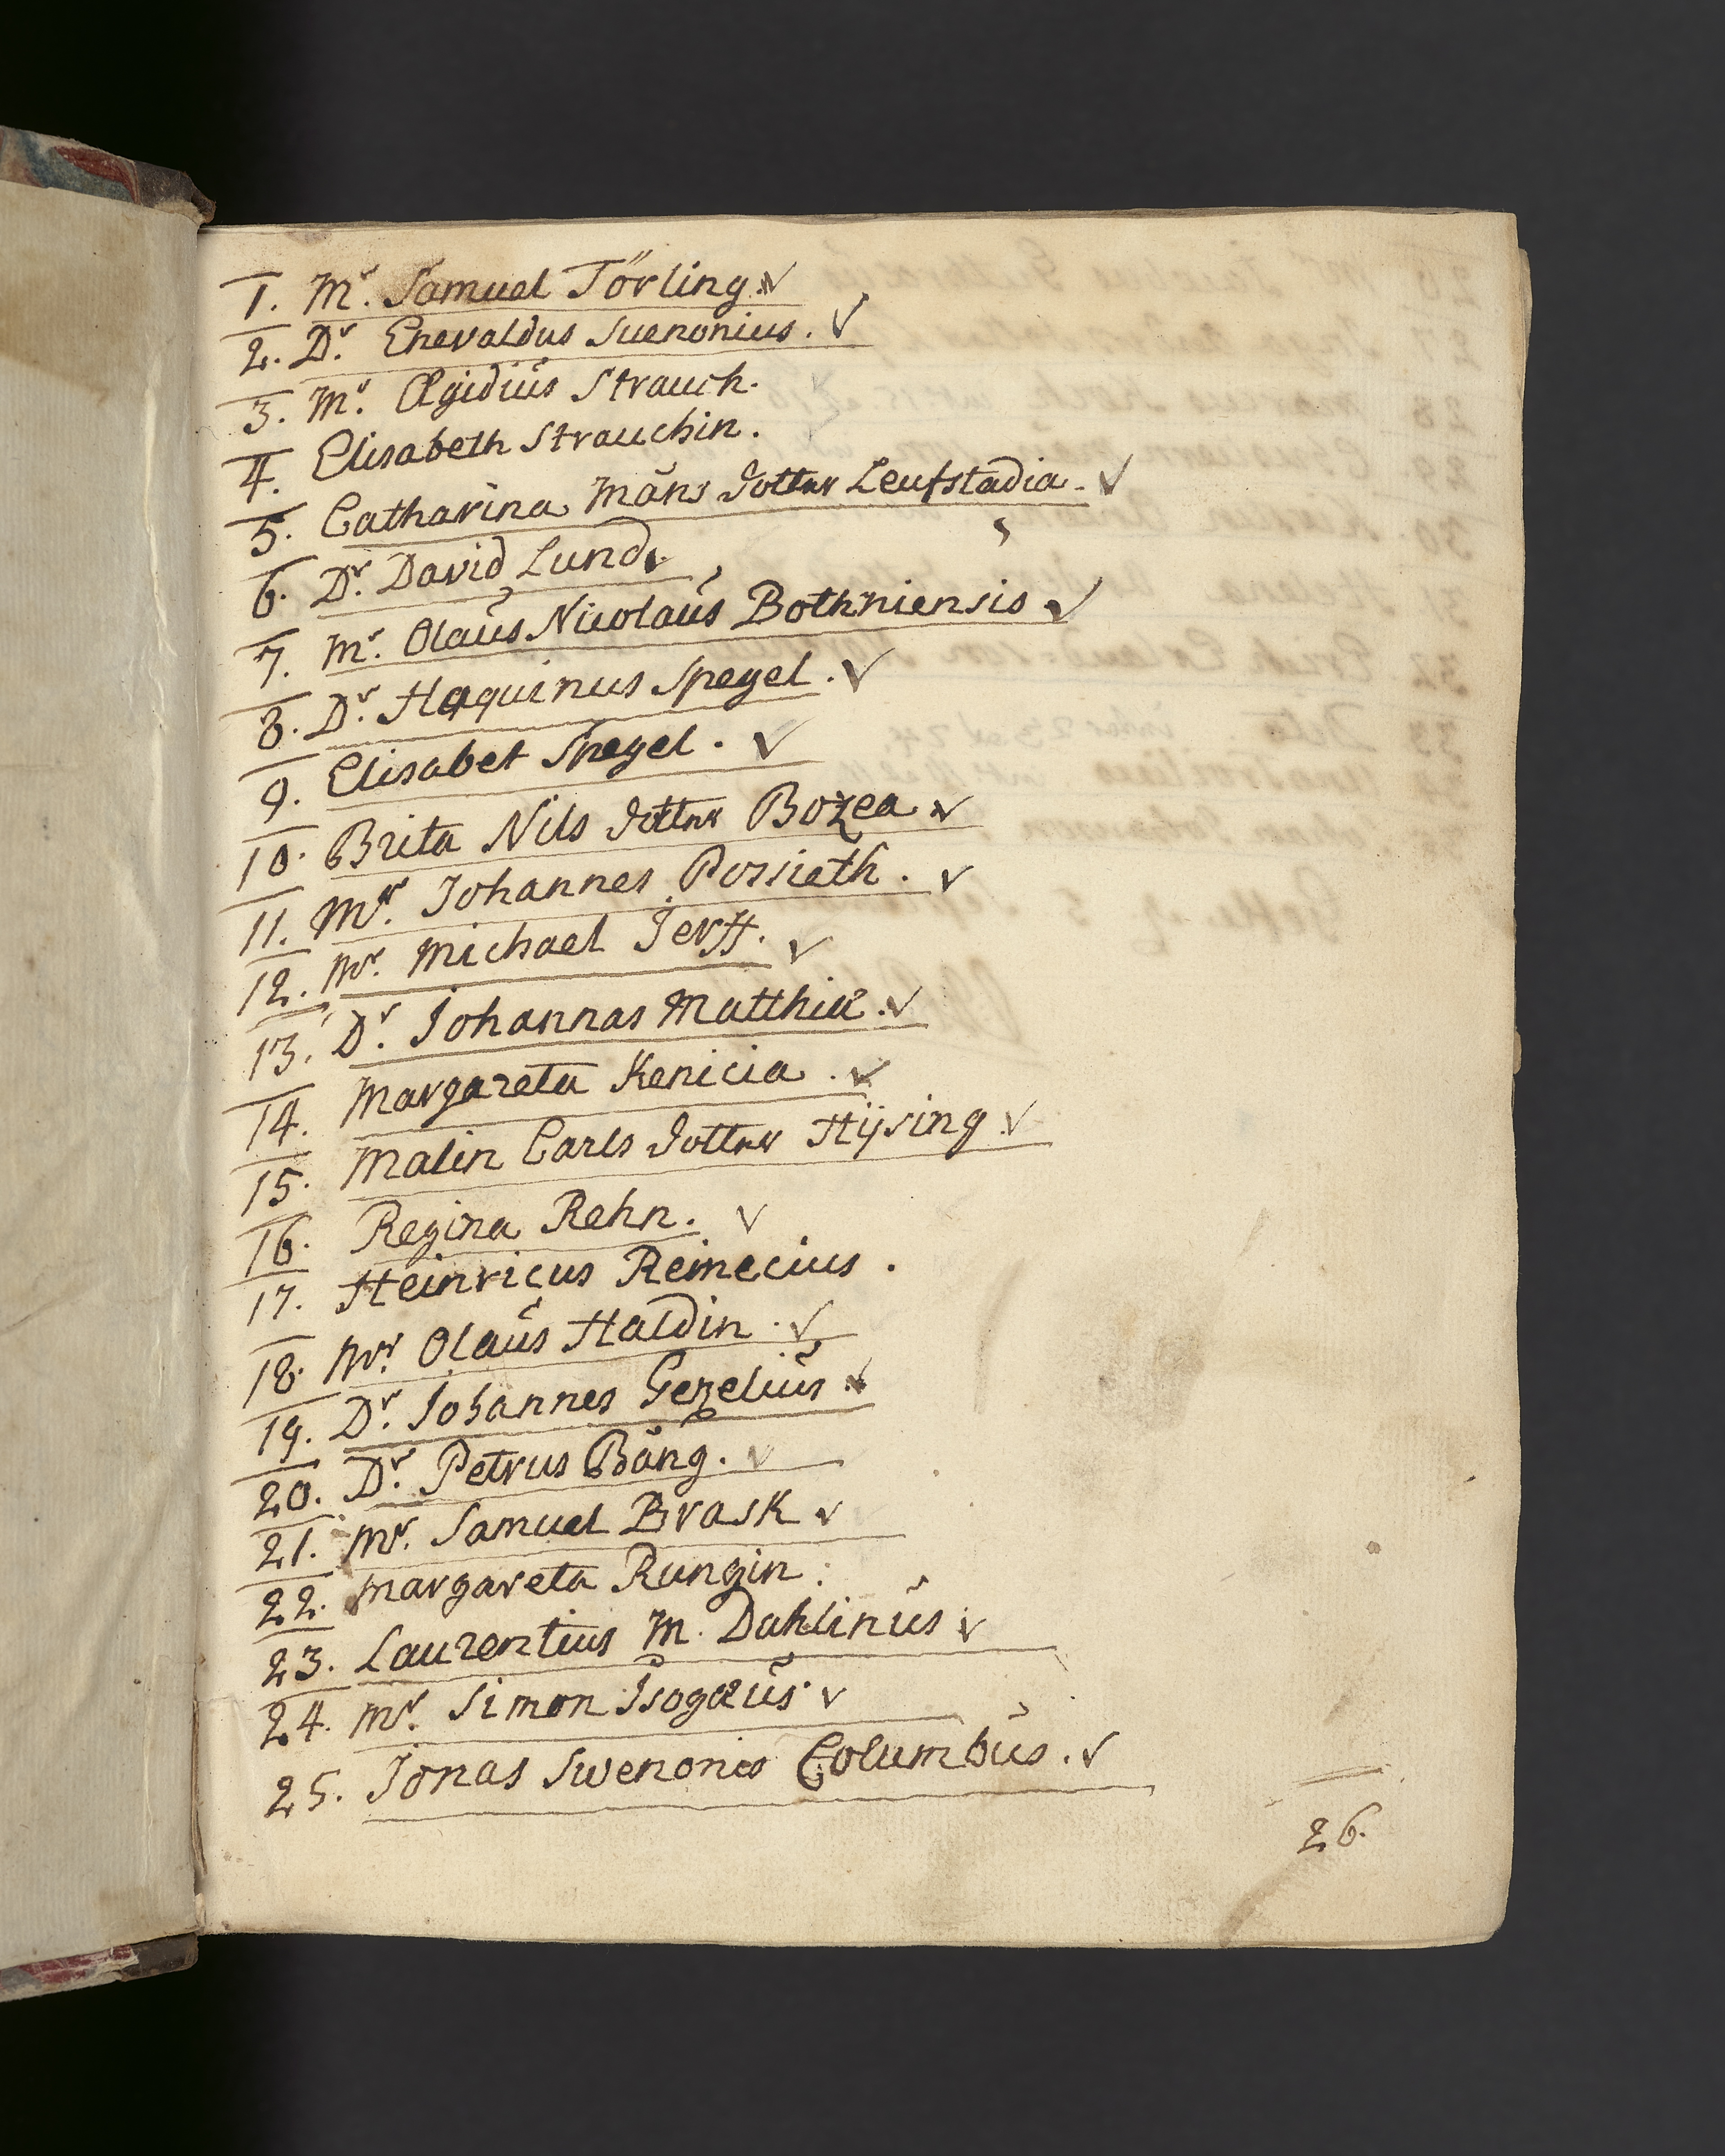 1. Mr. Samuel Törling. ✓
2. Dr. Enevaldus Suenonius. ✓
3. Mr. Ægidiŭs Strauch.
4. Elisabeth Strauchin.
5. Catharina Måns dotter Leufstadia. ✓
6. Dr. David Lund. ✓
7. Mr. Olaŭs Nicolaŭs Bothniensis. ✓
8. Dr. Haquinus Spegel. ✓
9. Elisabet Spegel. ✓
10. Brita Nils dotter Bozea. ✓
11. Mr. Johannes Possieth. ✓
12. Mr. Michael Jerff. ✓
13. Dr. Johannas Matthiæ. ✓
14. Margareta Kenicia. ✓
15. Malin Carls dotter Hÿsing ✓
16. Regina Rehn. ✓
17. Heinricus Reinecius.
18. Mr. Olaŭs Haldin. ✓
19. Dr. Johannes Gezeliŭs. ✓
20. Dr. Petrus Bång. ✓
21. Mr. Samuel Brask ✓
22. Margareta Rungin.
23. Laurentius M. Dahlinŭs. ✓
24. Mr. Simon Isogæŭs. ✓
25. Jonas Swenonis Columbŭs. ✓
26.